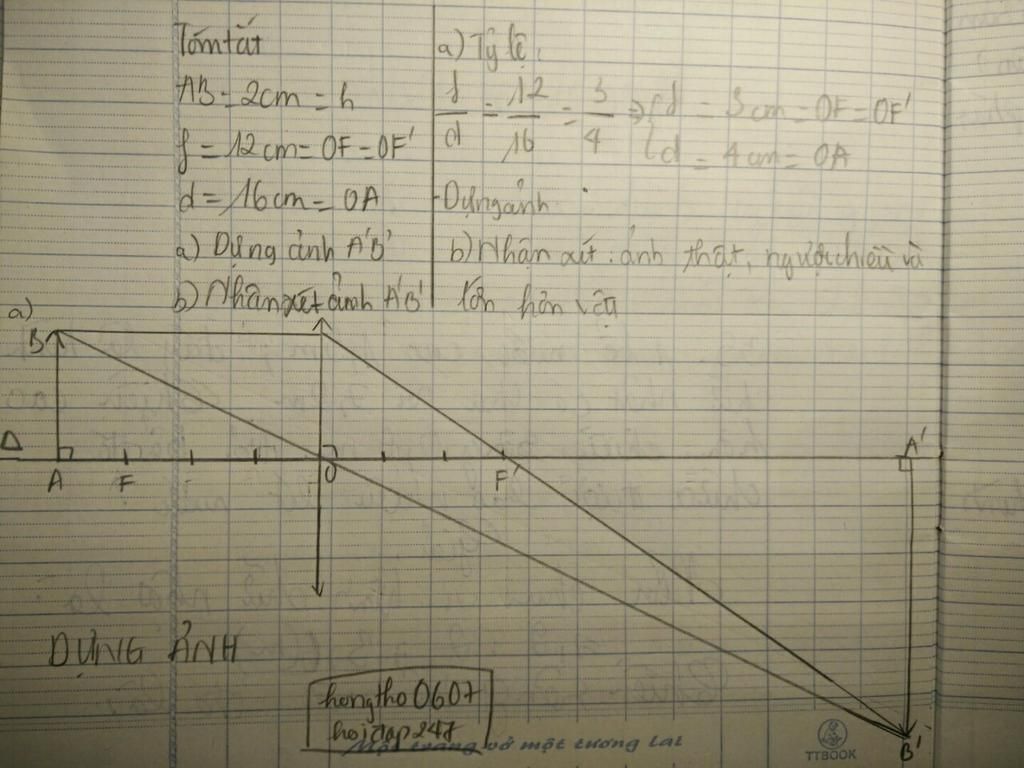 Tóm tắt
AB = 2cm = h
f = 12cm = OF = OF'
d = 16cm = OA
a) Dựng ảnh A'B'
b) Nhận xét ảnh A'B'
a) Tỷ lệ:
f/d = 12/16 = 3/4 => { f = 3cm = OF = OF'
d = 4cm = OA
- Dựng ảnh
b) Nhận xét: ảnh thật, ngược chiều và
lớn hơn vật
a)
B
Δ
A F O F' A'
B'
DỰNG ẢNH
hongtho0607
hoidap247
Một trang vở một tương lai
TTBOOK